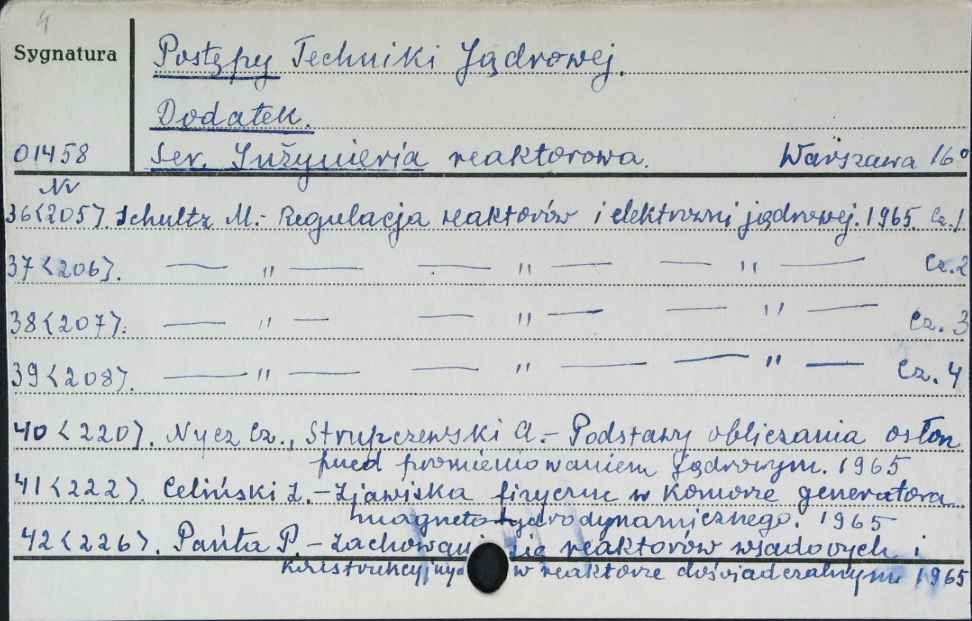 4
Sygnatura Postępy Techniki Jądrowej.
Dodatek.
01458 Ser. Inżynieria reaktorowa. Warszawa 16°
Nr
36<205>. Schultz M.- Regulacja reaktorów i elektrowni jądrowej. 1965. Cz.1
37<206>. — " — — " — — " — Cz.2
38<207>. — " — — " — — " — Cz. 3
39<208>. — " — — " — — " — Cz. 4
40<220>. Nycz Cz., Strupczewski A.- Podstawy obliczania osłon
przed promieniowaniem jądrowym. 1965
41<222>. Celiński Z.- Zjawiska fizyczne w komorze generatora
magnetohydrodynamicznego. 1965
42<226>. P. - się reaktorów i
w reaktorze doświadczalnym 1965